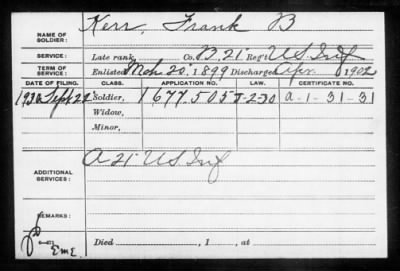 NAME OF SOLDIER: Kerr, Frank B
SERVICE: Late rank, Co. B. 21" Reg't US Inf
TERM OF SERVICE: Enlisted Mch. 20, 1899 Discharged Apr. 1902
DATE OF FILING. CLASS. APPLICATION NO. CERTIFICATE NO.
1930 Sept 22 Soldier, 1677.505 a-1-31-31
Widow,
Minor,
ADDITIONAL SERVICES: a 21" US Inf
REMARKS:
EmE.
Died , 1 , at